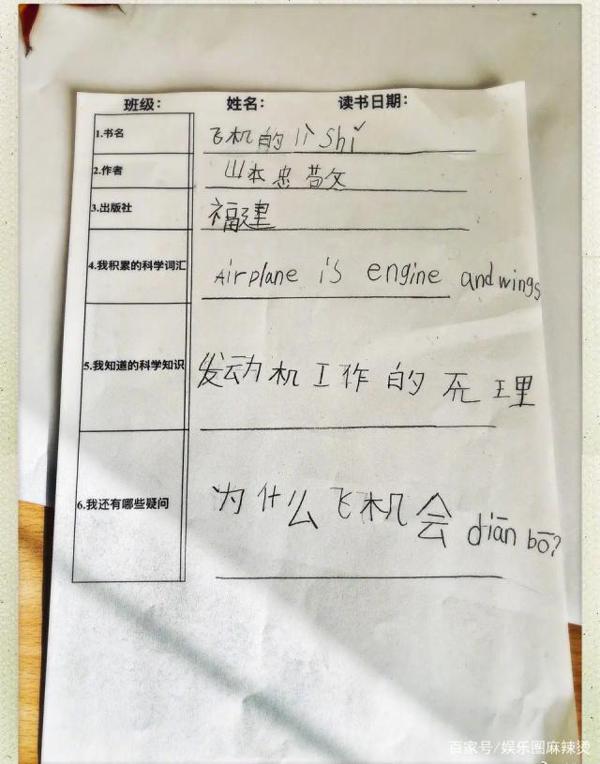 班级: 姓名: 读书日期:
1.书名 飞机的 lì Shǐ
2.作者 山本忠敬
3.出版社 福建
4.我积累的科学词汇 Airplane is engine and wings
5.我知道的科学知识 发动机工作的 理
6.我还有哪些疑问 为什么飞机会 diān bō?
百家号/娱乐圈麻辣烫